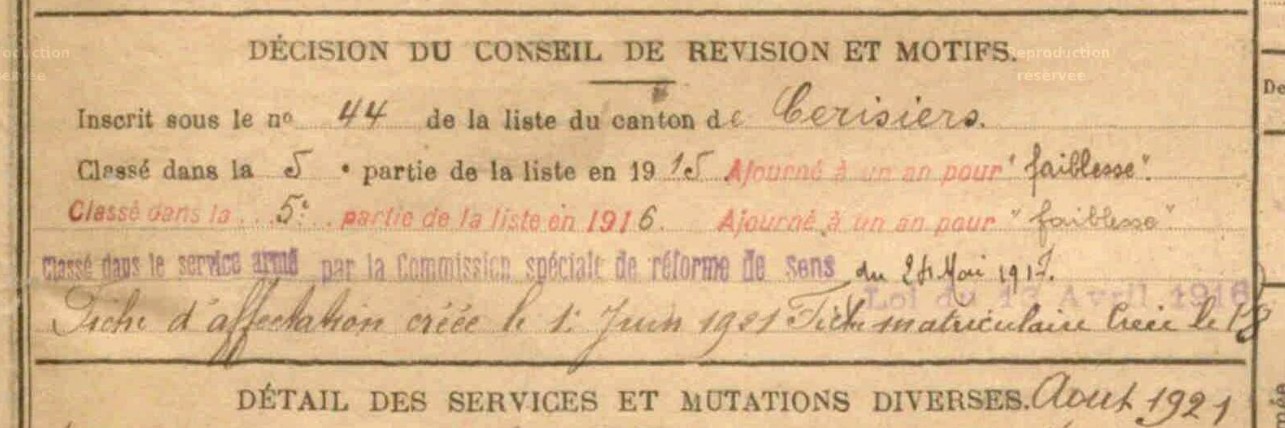 Reproduction
réservée
DÉCISION DU CONSEIL DE REVISION ET MOTIFS.
Inscrit sous le nº 44 de la liste du canton de Cerisiers.
Classé dans la 5 e partie de la liste en 1915 Ajourné à un an pour "faiblesse".
Classé dans la 5e partie de la liste en 1916. Ajourné à un an pour "faiblesse".
Classé dans le service armé par la Commission spéciale de réforme de Sens du Mai 1917.
Loi du 13 Avril 1916
Fiche d'affectation créée le 1e Juin 1921 Fiche matriculaire Créée le
DÉTAIL DES SERVICES ET MUTATIONS DIVERSES. Aout 1921